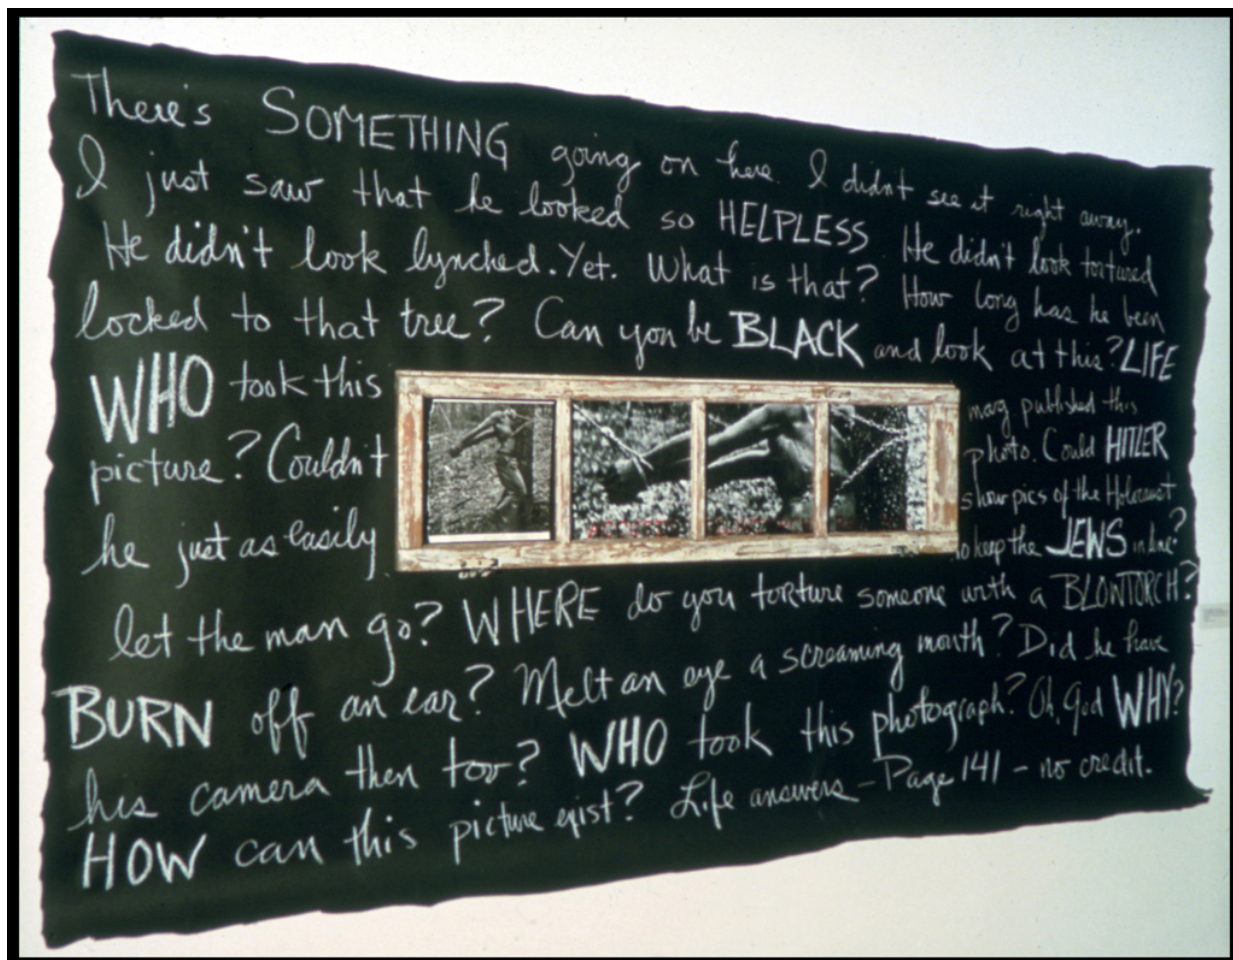 There's SOMETHING going on here. I didn't see it right away.
I just saw that he looked so HELPLESS. He didn't look tortured
He didn't look lynched. Yet. What is that? How long has he been
locked to that tree? Can you be BLACK and look at this? LIFE
WHO took this
mag published this
picture? Couldn't
photo. Could HITLER
he just as easily
show pics of the Holocaust
to keep the JEWS in line?
let the man go? WHERE do you torture someone with a BLOWTORCH?
BURN off an ear? Melt an eye a screaming mouth? Did he have
his camera then too? WHO took this photograph? Oh, God WHY?
HOW can this picture exist? Life answers – Page 141 – no credit.